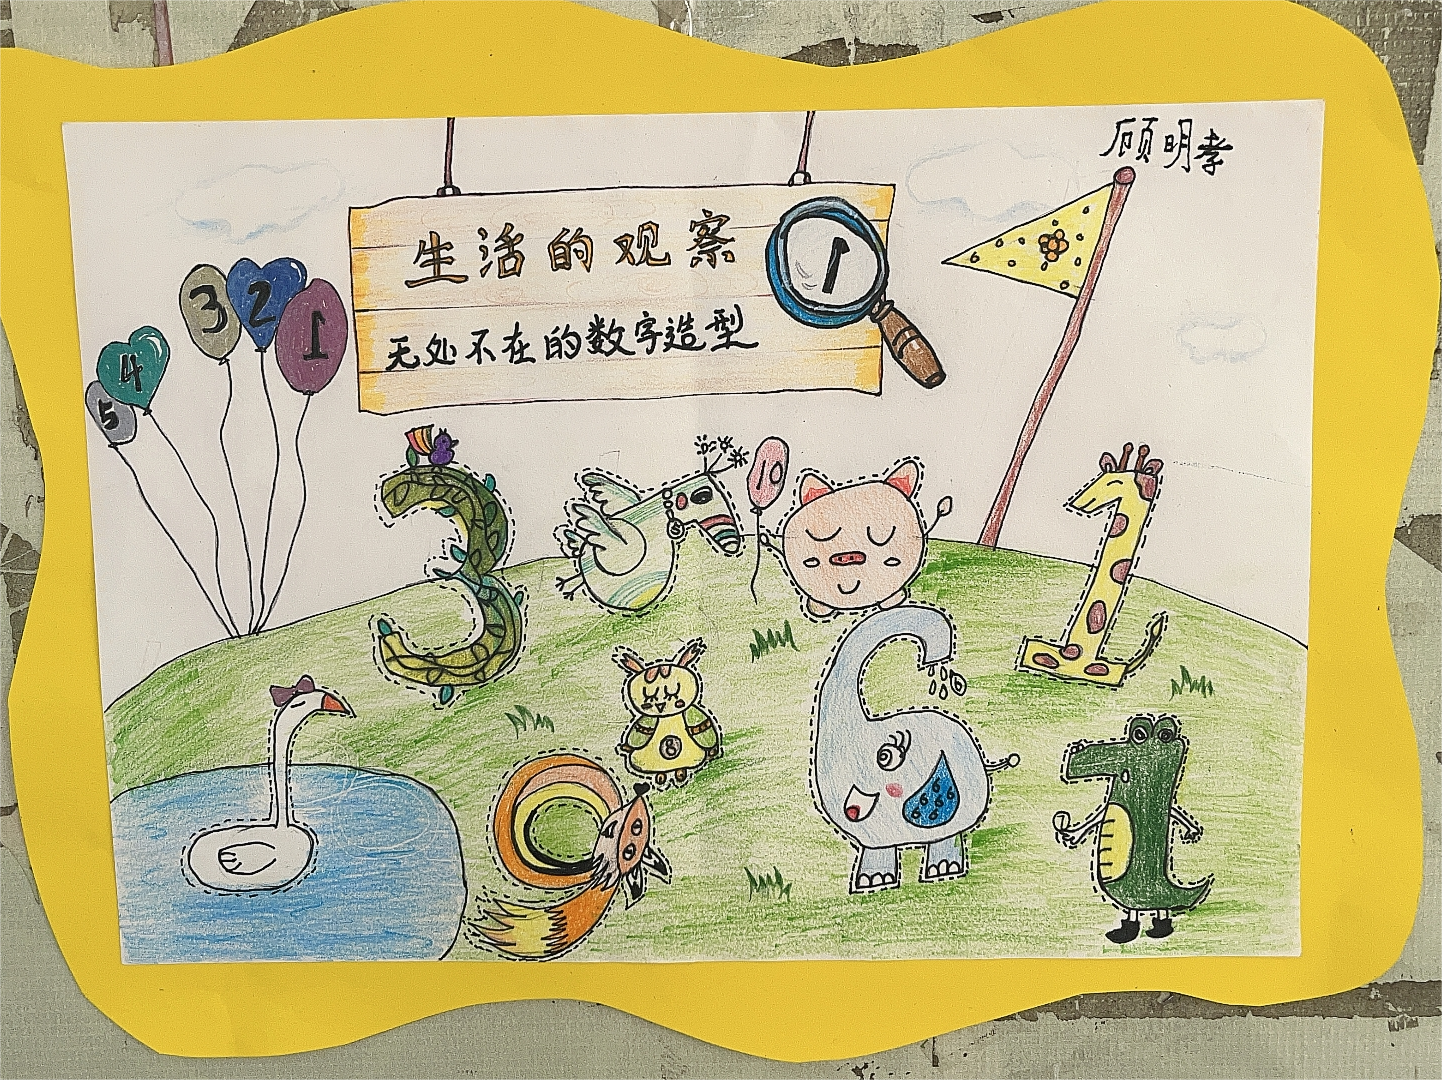 顾明孝
生活的观察
1
无处不在的数字造型
3 2 1
4
5
10
6
8
7